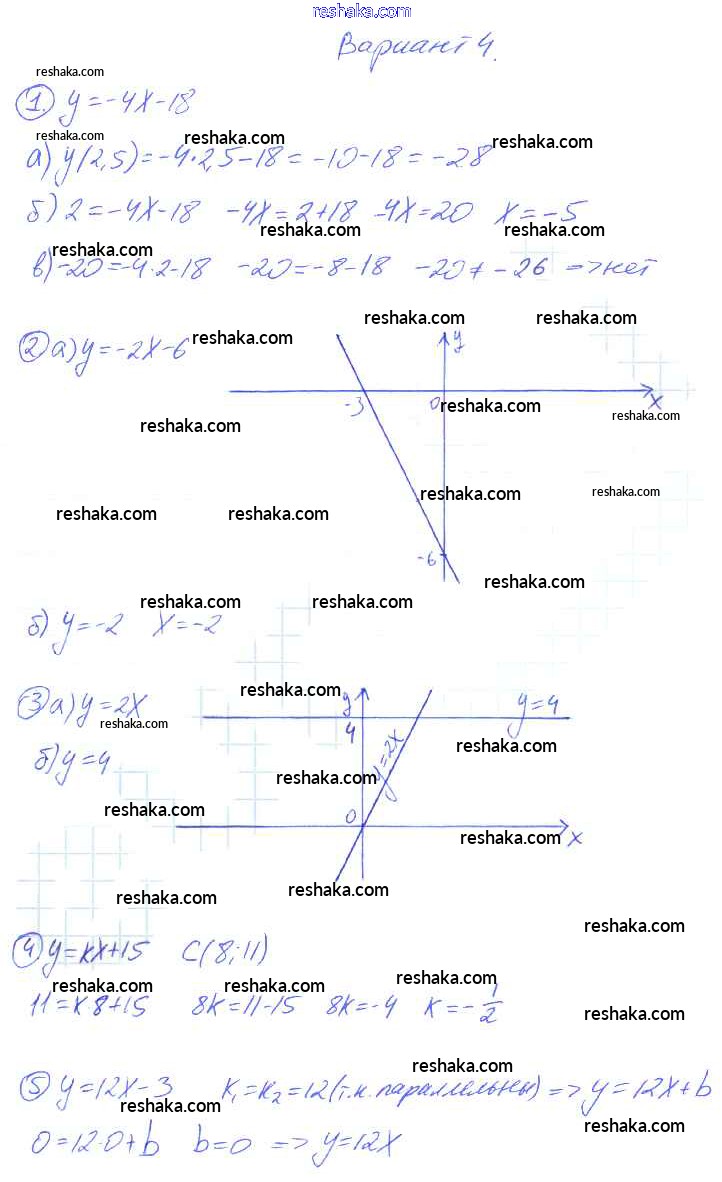 reshaka.com
Вариант 4.
reshaka.com
① y = -4x-18
reshaka.com reshaka.com
а) y(2,5) = -4·2,5-18 = -10-18 = -28
б) 2 = -4x-18 -4x = 2+18 -4x = 20 x = -5
reshaka.com reshaka.com reshaka.com
в) -20 = -4·2-18 -20 = -8-18 -20 ≠ -26 => нет
reshaka.com reshaka.com
② а) y = -2x-6 reshaka.com y
-3 0 reshaka.com x
reshaka.com reshaka.com
reshaka.com reshaka.com
reshaka.com reshaka.com
-6
reshaka.com
reshaka.com reshaka.com
б) y = -2 x = -2
③ а) y = 2x reshaka.com y y = 4
reshaka.com 4 y=2x reshaka.com
б) y = 4 reshaka.com
reshaka.com 0 reshaka.com x
reshaka.com reshaka.com
reshaka.com
④ y = kx+15 C(8; 11)
reshaka.com reshaka.com reshaka.com
11 = k·8+15 8k = 11-15 8k = -4 k = -1/2
reshaka.com
reshaka.com
⑤ y = 12x-3 k₁ = k₂ = 12 (т.к. параллельны) => y = 12x+b
reshaka.com reshaka.com
0 = 12·0+b b = 0 => y = 12x